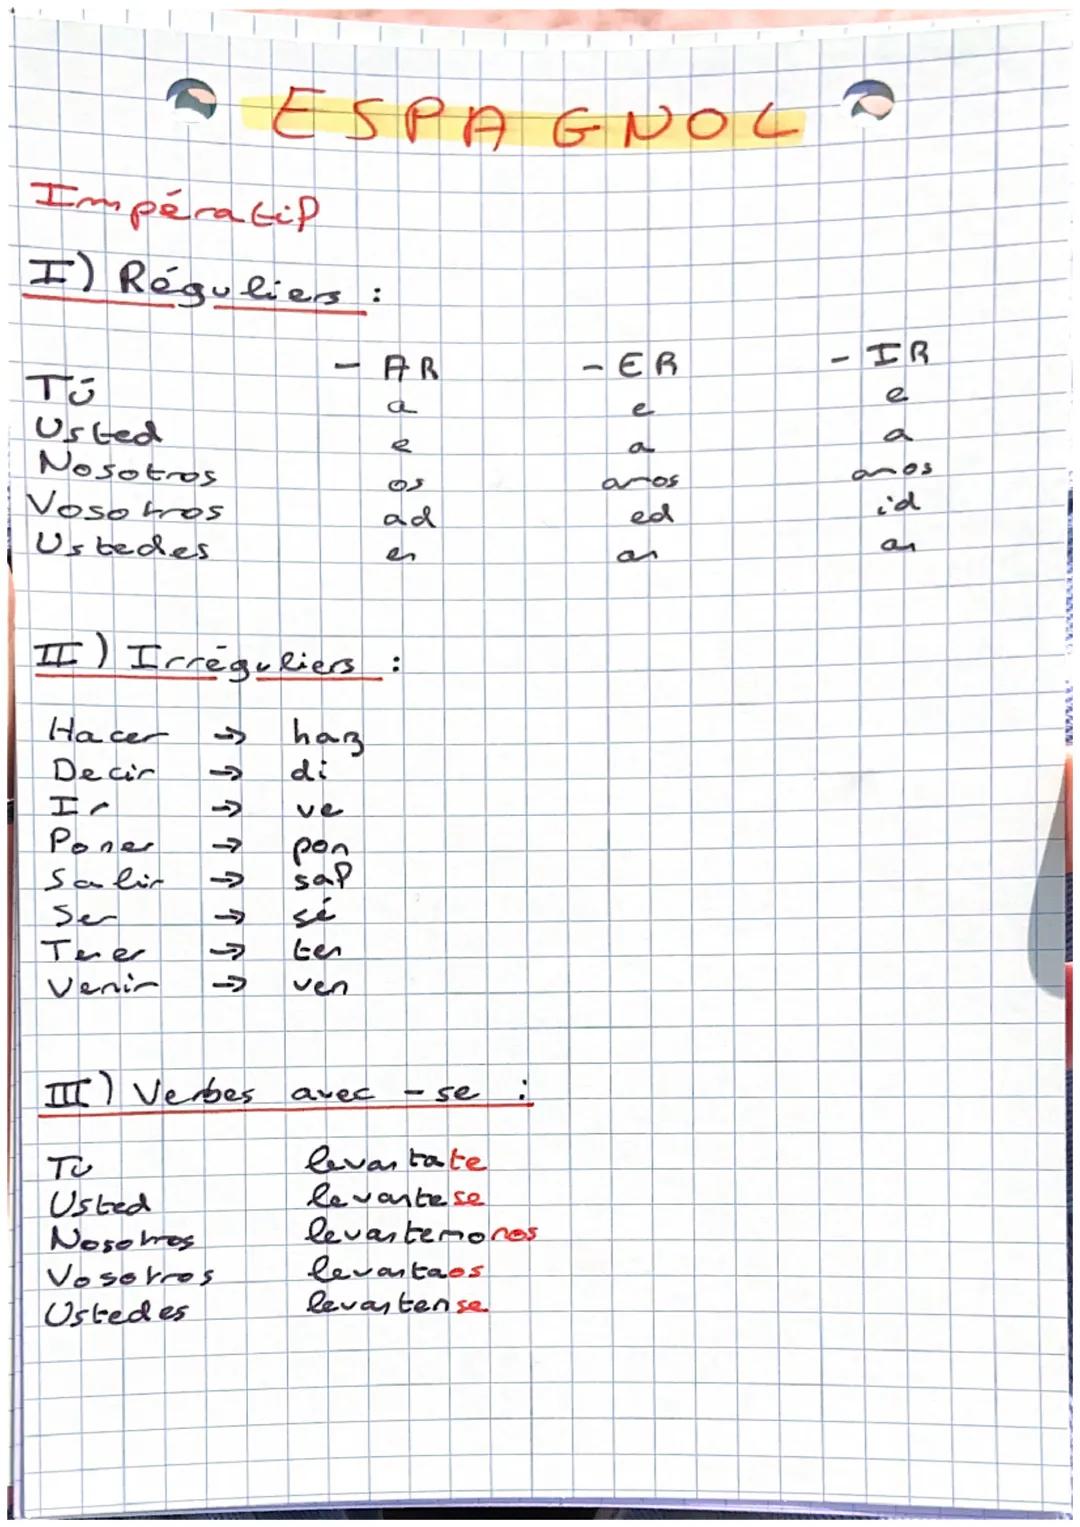 ESPAGNOL
Impératif
I) Réguliers :
- AR - ER - IR
Tú a e e
Usted e a a
Nosotros os amos amos
Vosotros ad ed id
Ustedes en an an
II) Irréguliers :
Hacer → haz
Decir → di
Ir → ve
Poner → pon
Salir → sal
Ser → sé
Tener → ten
Venir → ven
III) Verbes avec - se :
Tú levantate
Usted levantese
Nosotros levantemonos
Vosotros levantaos
Ustedes levantense